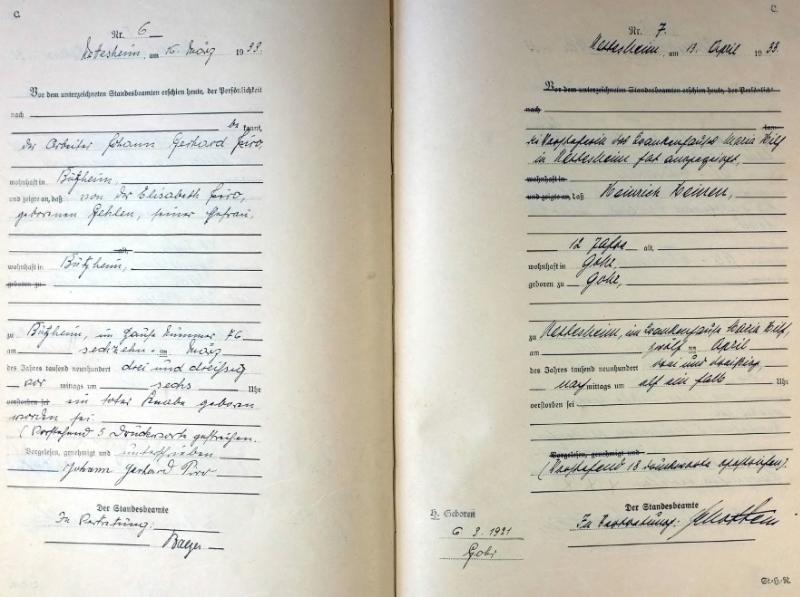 C.
Nr. 6
Nettesheim, am 16. März 1933
Vor dem unterzeichneten Standesbeamten erschien heute, der Persönlichkeit
nach
be kannt,
der Arbeiter Johann Gerhard Piro,
wohnhaft in Bützheim,
und zeigte an, daß von der Elisabeth Piro,
geborenen Gehlen, seiner Ehefrau,
alt,
wohnhaft in Bützheim,
geboren zu
zu Bützheim, im Hause Nummer 76
am sechzehnten März
des Jahres tausend neunhundert drei und dreißig
vor mittags um sechs Uhr
verstorben sei ein toter Knabe geboren
worden sei.
(Vorstehend 5 Druckworte gestrichen.
Vorgelesen, genehmigt und unterschrieben
Johann Gerhard Piro
Der Standesbeamte
In Vertretung:
C.
Nr. 7
Nettesheim, am 13. April 1933.
Vor dem unterzeichneten Standesbeamten erschien heute, der Persönlichkeit
nach
kannt,
die Vorsteherin des Krankenhauses Maria Hilf
in Nettesheim hat angezeigt,
wohnhaft in
und zeigte an, daß Heinrich Heinen,
12 Jahre alt,
wohnhaft in Gohr,
geboren zu Gohr,
zu Nettesheim, im Krankenhause Maria Hilf,
am zwölften April
des Jahres tausend neunhundert drei und dreißig
nach mittags um elf ein halb Uhr
verstorben sei
Vorgelesen, genehmigt und
(Vorstehend 18 Druckworte gestrichen.)
Der Standesbeamte
In Vertretung:
H. Geboren
6 3. 1921
Gohr